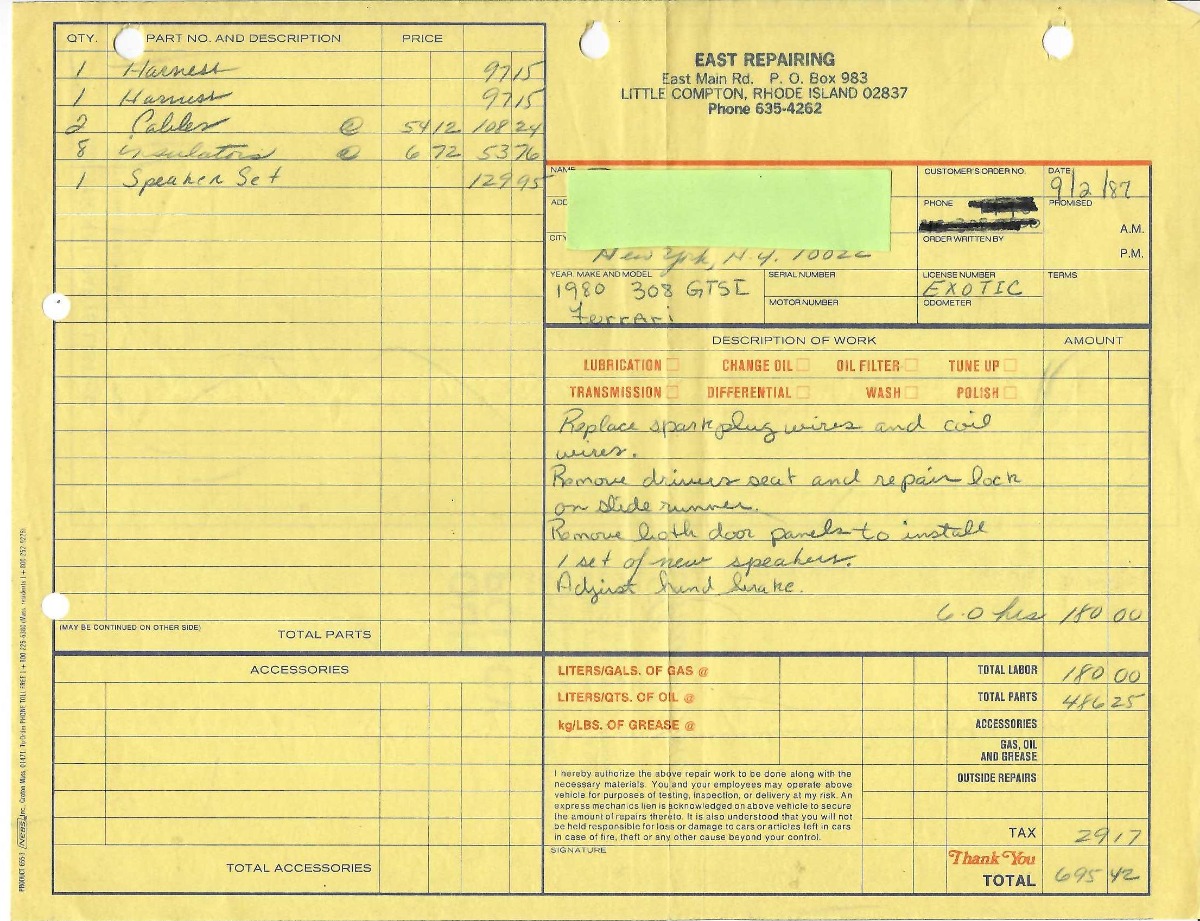 QTY. PART NO. AND DESCRIPTION PRICE
1 Harness 97 15
1 Harness 97 15
2 Cables @ 54 12 108 24
8 insulators @ 6 72 53 76
1 Speaker Set 129 95
(MAY BE CONTINUED ON OTHER SIDE) TOTAL PARTS
ACCESSORIES
TOTAL ACCESSORIES
EAST REPAIRING
East Main Rd. P. O. Box 983
LITTLE COMPTON, RHODE ISLAND 02837
Phone 635-4262
NAME
CUSTOMER'S ORDER NO.
DATE
9/2/87
ADD
PHONE
PROMISED
A.M.
CITY
New York, N.Y.
ORDER WRITTEN BY
P.M.
YEAR, MAKE AND MODEL
1980 308 GTSI
Ferrari
SERIAL NUMBER
MOTOR NUMBER
LICENSE NUMBER
EXOTIC
ODOMETER
TERMS
DESCRIPTION OF WORK AMOUNT
LUBRICATION CHANGE OIL OIL FILTER TUNE UP
TRANSMISSION DIFFERENTIAL WASH POLISH
Replace spark plug wires and coil
wires.
Remove drivers seat and repair lock
on slide runner.
Remove both door panels to install
1 set of new speakers.
Adjust hand brake.
6.0 hrs 180 00
LITERS/GALS. OF GAS @
LITERS/QTS. OF OIL @
kg/LBS. OF GREASE @
TOTAL LABOR 180 00
TOTAL PARTS 486 25
ACCESSORIES
GAS, OIL
AND GREASE
OUTSIDE REPAIRS
TAX 29 17
Thank You
TOTAL 695 42
I hereby authorize the above repair work to be done along with the
necessary materials. You and your employees may operate above
vehicle for purposes of testing, inspection, or delivery at my risk. An
express mechanics lien is acknowledged on above vehicle to secure
the amount of repairs thereto. It is also understood that you will not
be held responsible for loss or damage to cars or articles left in cars
in case of fire, theft or any other cause beyond your control.
SIGNATURE